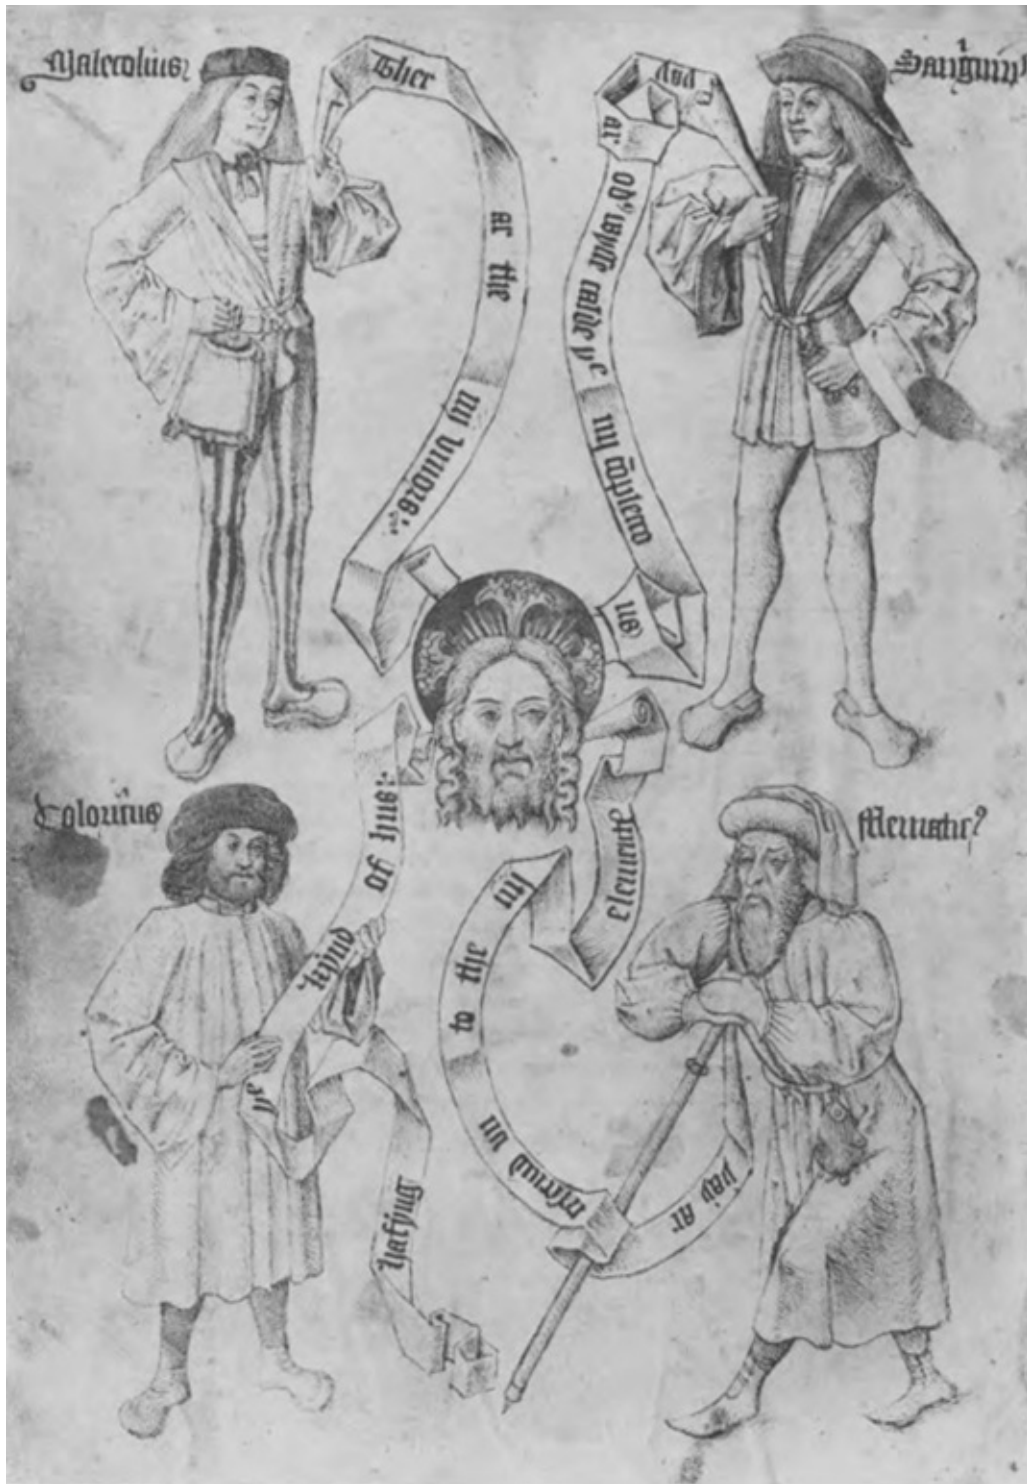 Malecolius
Ther ar the iiij vmors
Sanguin9
And yay ar od'wysse calde ye iiij cōplecco ns
Coloricus
kynd of hus hafyng
fflematic9
yay ar aserud vn to the iiij elementes